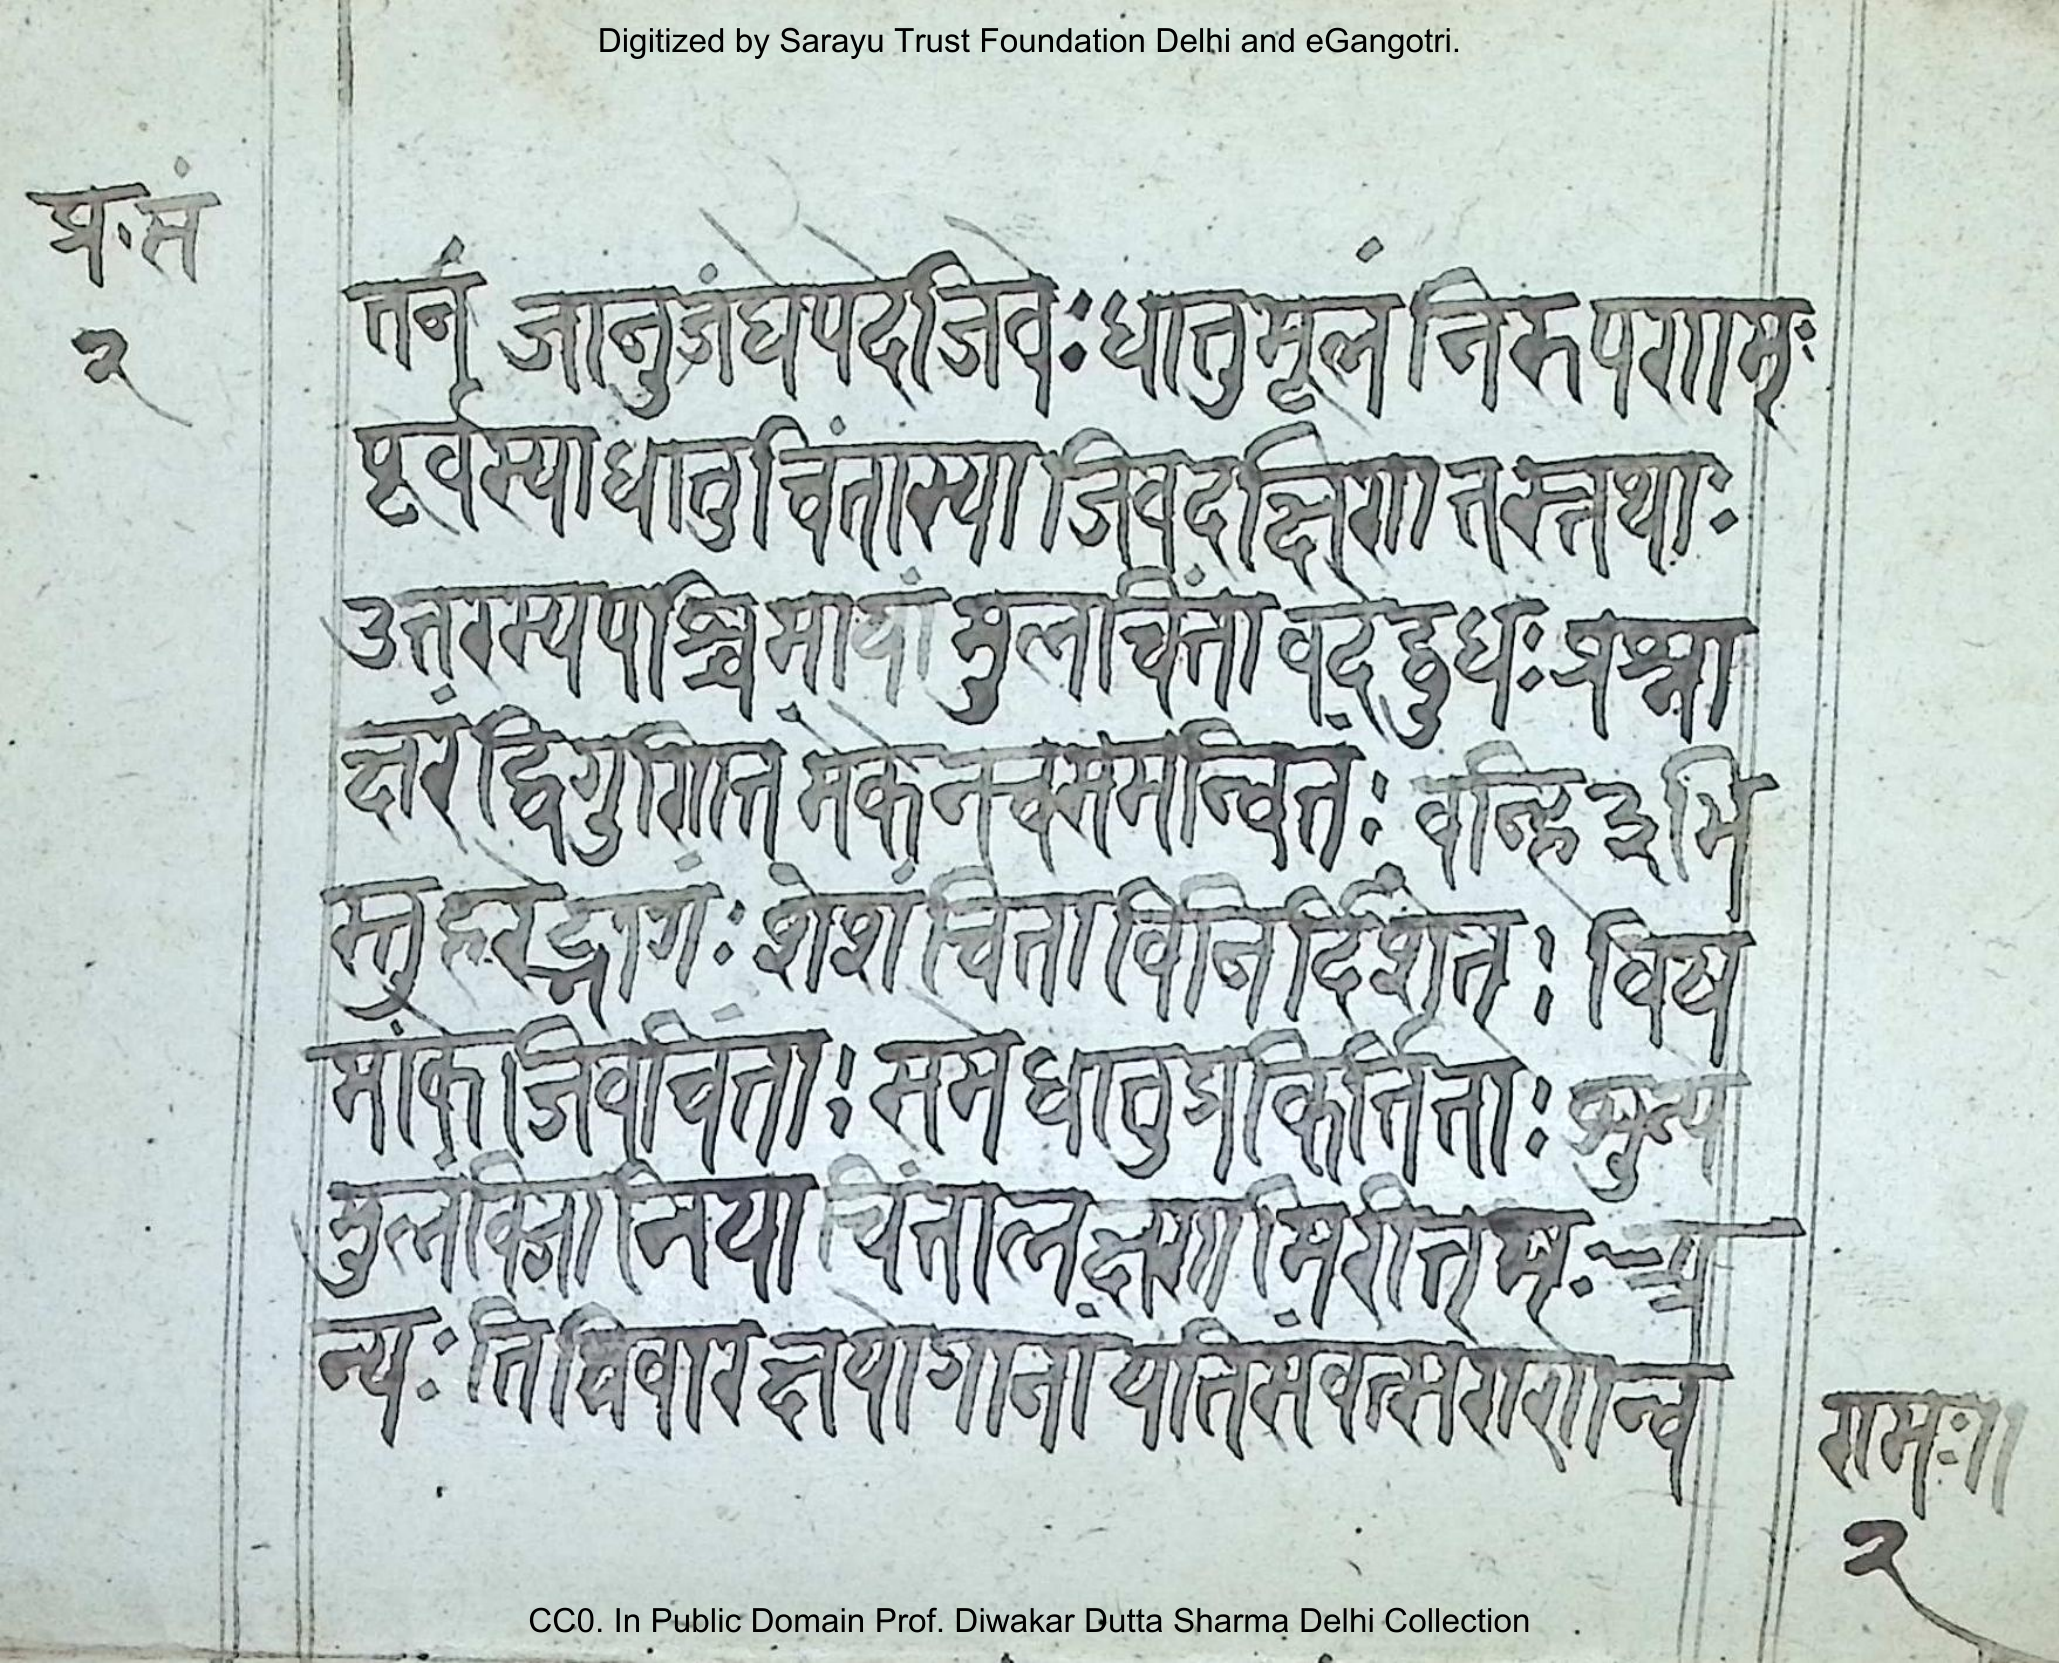 Digitized by Sarayu Trust Foundation Delhi and eGangotri.
प्र॰सं
२
तनं जानुजंघेपदेजिवेः धातुमूलं निरुपणाम्ः
पूर्वस्याधातुचिंतास्या जिवदक्षिणा तस्तथाः
उत्तरस्यपश्चिमायां मुलचिंता वदेद्बुधः प्रश्ना
क्षरं द्विगुणितं मेकेनचसमन्वितंः वन्हि ३ भि
स्तु हरेद्भागंः शेशं चिंता विनिर्दिशेत्ः विष
मांके जिवचिंताः समेधातुप्रकिर्तिताः
मुलंविजानिया चिंतालक्षणमिरीतम्ः अ
न्यः तिथिवारक्षयोगानां यतिसंवत्सरागणान्व
रामः॥
२
CC0. In Public Domain Prof. Diwakar Dutta Sharma Delhi Collection